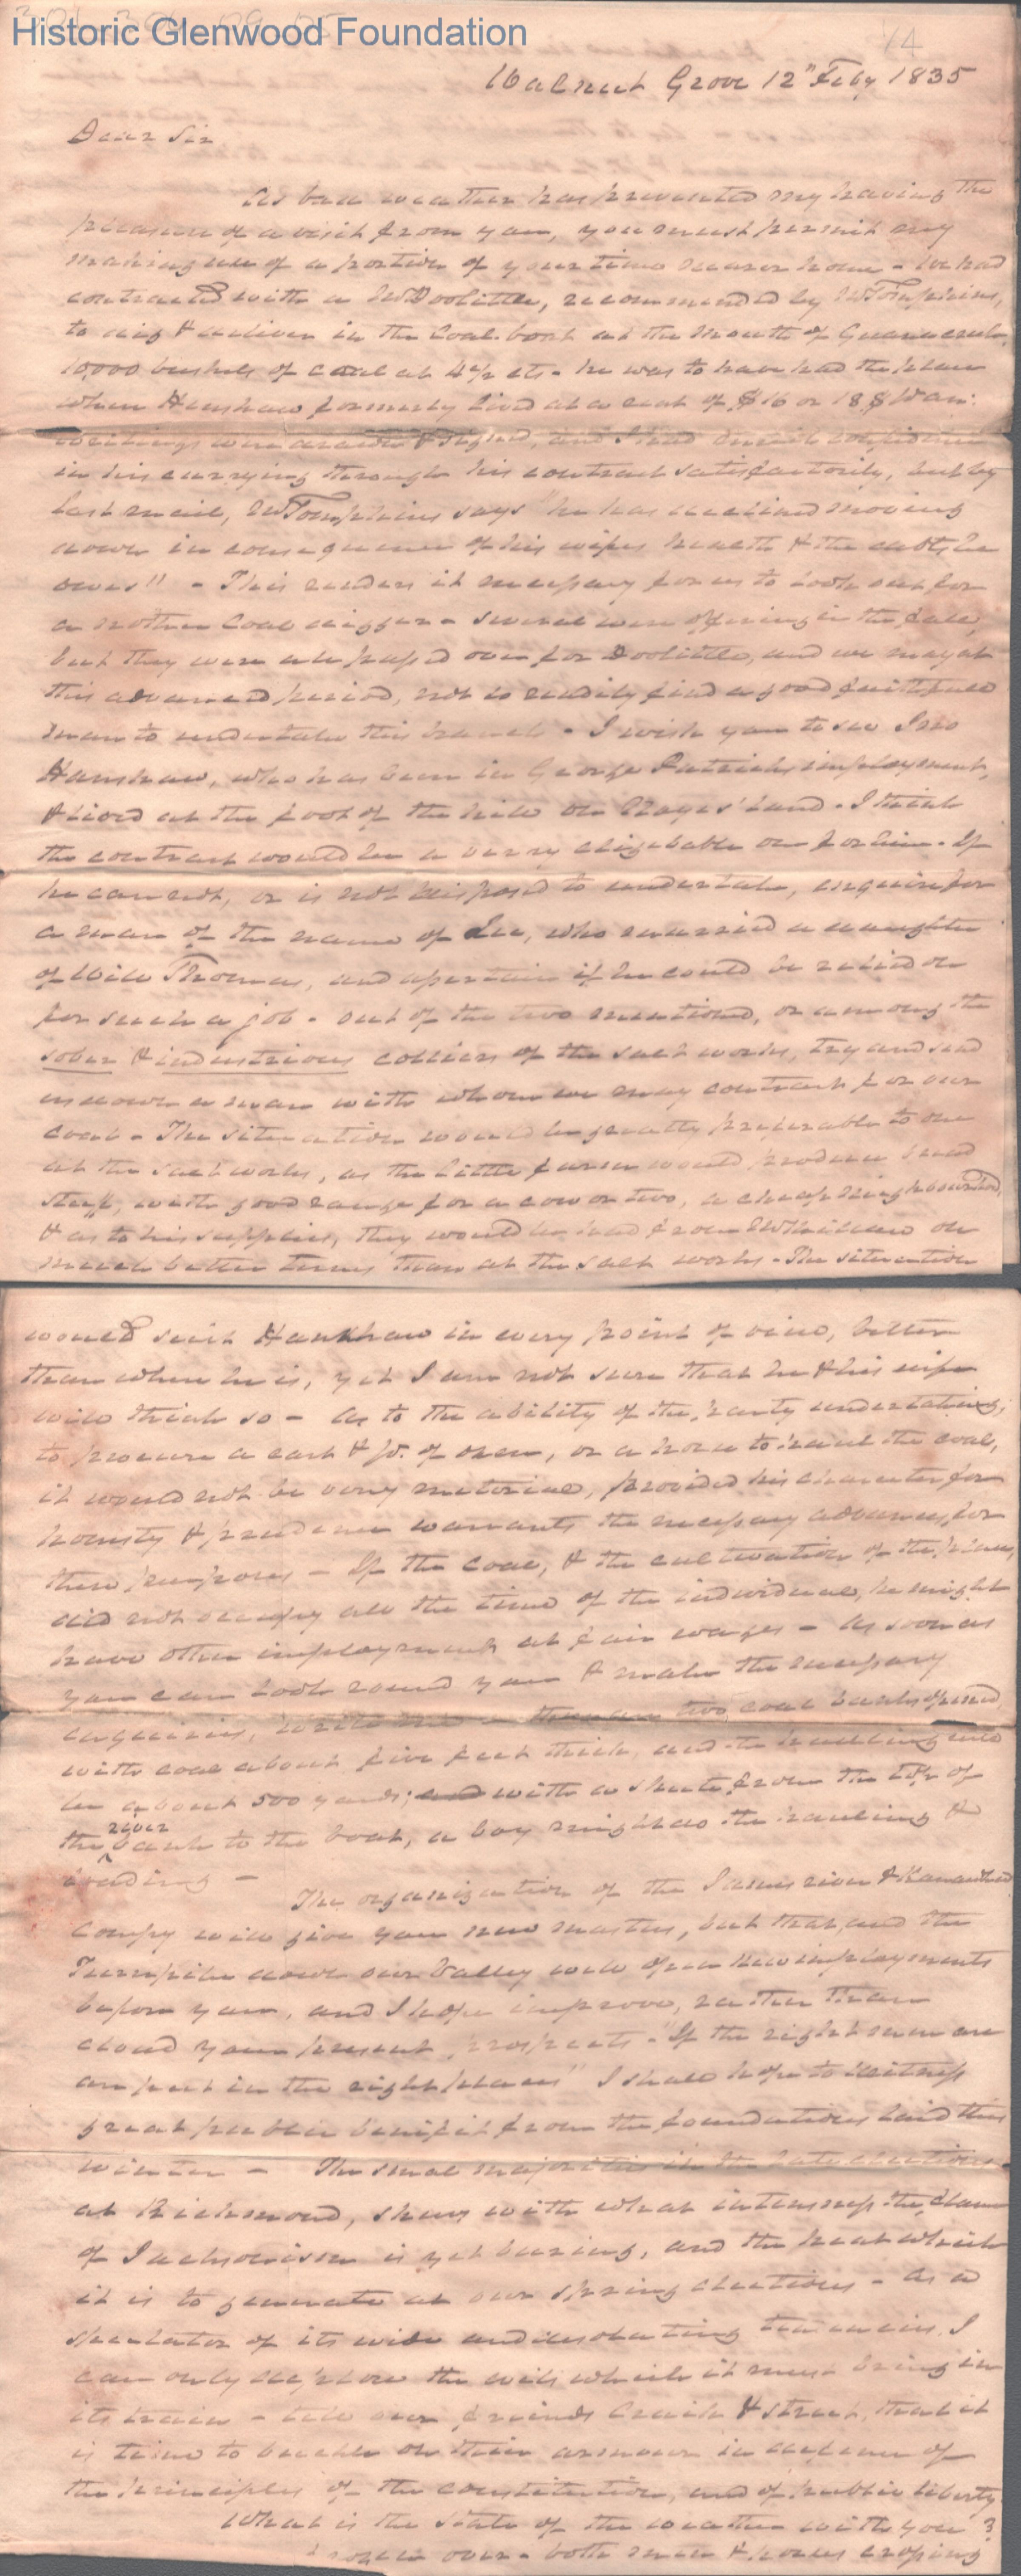 Historic Glenwood Foundation
14
Walnut Grove 12" Feby 1835
Dear Sir
As bad weather has prevented my having the
pleasure of a visit from you, you must permit my
making use of a portion of your time nearer home - We had
contracted with a Mr Doolittle, recommended by Mr Tompkins,
to dig & deliver in the Coal boat at the mouth of
10,000 bushels of coal at 4 1/2 cts - he was to have had the place
where Henshaw formerly lived at a rent of $16 or 18 $
writings were drawn & signed, and I had confidence
in his carrying through his contract satisfactorily, but by
last mail, Mr Tompkins says "he has declined moving
down in consequence of his wifes health & the debts he
owes" - This renders it necessary for us to look out for
another Coal digger - several were offering in the fall,
but they were all passed over for Doolittle, and we may at
this advanced period, not so readily find a good faithfull
man to undertake this branch - I wish you to see Jno
Hanshaw, who has been in George Patricks imployment,
& lived at the foot of the hill on Hayes' land - I think
the contract would be a very eligebable one for him - If
he can not, or is not disposed to undertake, enquire for
a man of the name of Lee, who married a daughter
of Will Thomas, and assertain if he could be relied on
for such a job - out of the two mentioned, or among the
sober & industrious colliers of the salt works, try and send
us down a man with whom we may contract for our
coal - The situation would be greatly preferable to one
at the salt works, as the little farm would produce bread
stuff, with good range for a cow or two, a cheap neighbourhood,
& as to his supplies, they would be had from on
much better terms than at the salt works - The situation
would suit Hanshaw in every point of view, better
than where he is, yet I am not sure that he & his wife
will think so - As to the ability of the party undertaking,
to procure a cart & pr. of oxen, or a horse to haul the coal,
it would not be very meterial, provided his charecter for
honesty & prudence warrants the necessary advances for
these purposes - If the coal, & the cultivation of the place,
did not occupy all the time of the individual, he might
have other imployment at fair wages - As soon as
you can look round you & make the necessary
enquiries, write me - there are two coal banks opened,
with coal about five feet thick, and the hauling will
be about 500 yards; and with a shute from the top of
the river bank to the boat, a boy might do the hauling &
loading -
The organization of the James river & Kanawha
Compy will give you new masters, but that, and the
Turnpike down our Valley will open new imployments
before you, and I hope improve, rather than
cloud your present prospects - "If the right men are
are put in the right places" I shall hope to Witness
great public benifit from the foundations laid this
winter - The small majorities in the late elections
at Richmond, shews with what intensness the flame
of Jacksonism is yet burning, and the heat which
it is to generate at our spring elections - As a
spectator of its wide and desolating tendencies, I
can only deplore the evils which it must bring in
its train - tell our friends & Street, that it
is time to buckle on their armour in defence of
the principles of the constitution, and of public liberty
What is the state of the weather with you ?
over - both men & horses crossing